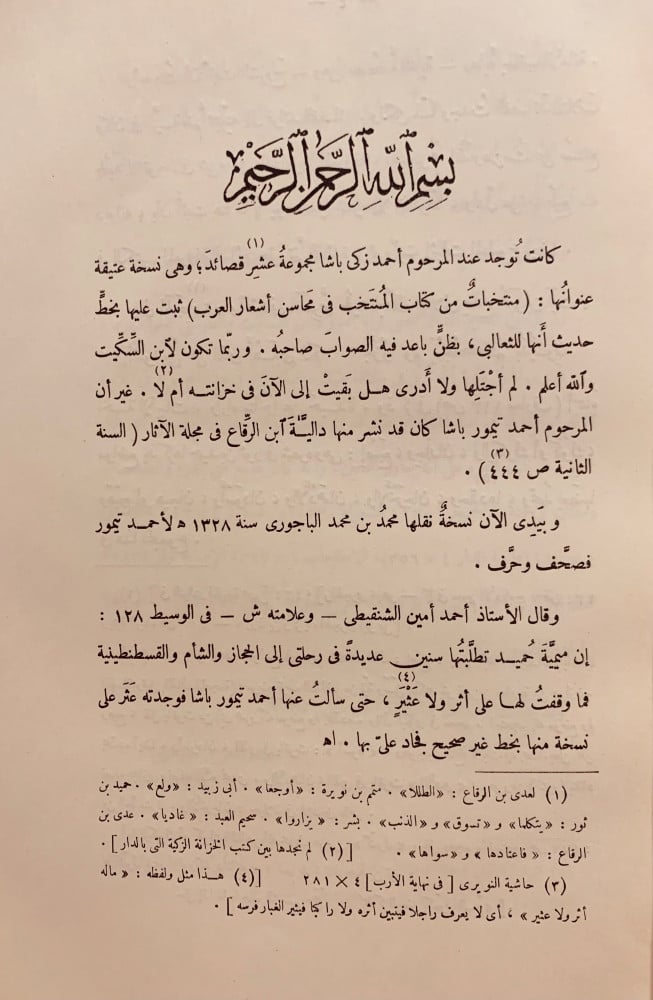 بِسْمِ اللهِ الرَّحْمٰنِ الرَّحِيْمِ
كانت تُوجد عند المرحوم أحمد زكى باشا مجموعةُ عشرِ قصائدَ(١)؛ وهى نسخة عتيقة
عنوانُها : (منتخباتٌ من كتاب المُنتَخب فى مَحاسن أشعار العرب) ثبت عليها بخطٍّ
حديث أَنها للثعالبى، بظنٍّ باعد فيه الصوابَ صاحبُه . وربّما تكون لاَبن السِّكِّيت
وٱلله أعلم . لم أجْتَلِها ولا أَدرى هـل بَقيتْ إلى الآنَ فى خزانتـه أم لا(٢) . غير أن
المرحوم أحمد تيمور باشا كان قد نشر منها داليَّـةَ ٱبن الرِّقاع فى مجلة الآثار ( السنة
الثانية ص ٤٤٤)(٣) .
و بيَدِى الآن نسخةٌ نقلها محمدُ بن محمد الباجورى سنة ١٣٢٨ ﻫ لأحمـد تيمور
فصحَّف وحرَّف .
وقال الأستاذ أحمد أمين الشنقيطى – وعلامته ش – فى الوسيط ١٢٨ :
إن ميميَّةَ حُميـد تطلَّبتُها سنين عديدةً فى رحلتى إلى الحجاز والشأم والقسطنطينية
فما وقفتُ لهـا على أثر ولا عَثْيَرٍ(٤) ، حتى سألتُ عنها أحمد تيمور باشا فوجدته عَثَر على
نسخة منها بخط غير صحيح فجاد علىّ بها . اﻫ
(١) لعدى بن الرقاع : «الطللا» . متمم بن نويرة : «أوجعا» . أبى زبيد : «ولع» . حميد بن
ثور : «يتكلما» و «تسوق» و «الذنب» . بشر : «يزاروا» . سحيم العبد : «غاديا» . عدى بن
الرقاع : « فاعتادها » و «سواها» . [(٢) لم نجدها بين كتب الخزانة الزكية التى بالدار] .
(٣) حاشية النويرى [ فى نهاية الأرب] ٤ × ٢٨١ [(٤) هـذا مثل ولفظه : « ماله
أثر ولا عثير » ، أى لا يعرف راجلا فيتبين أثره ولا راكبا فيثير الغبار فرسه ] .